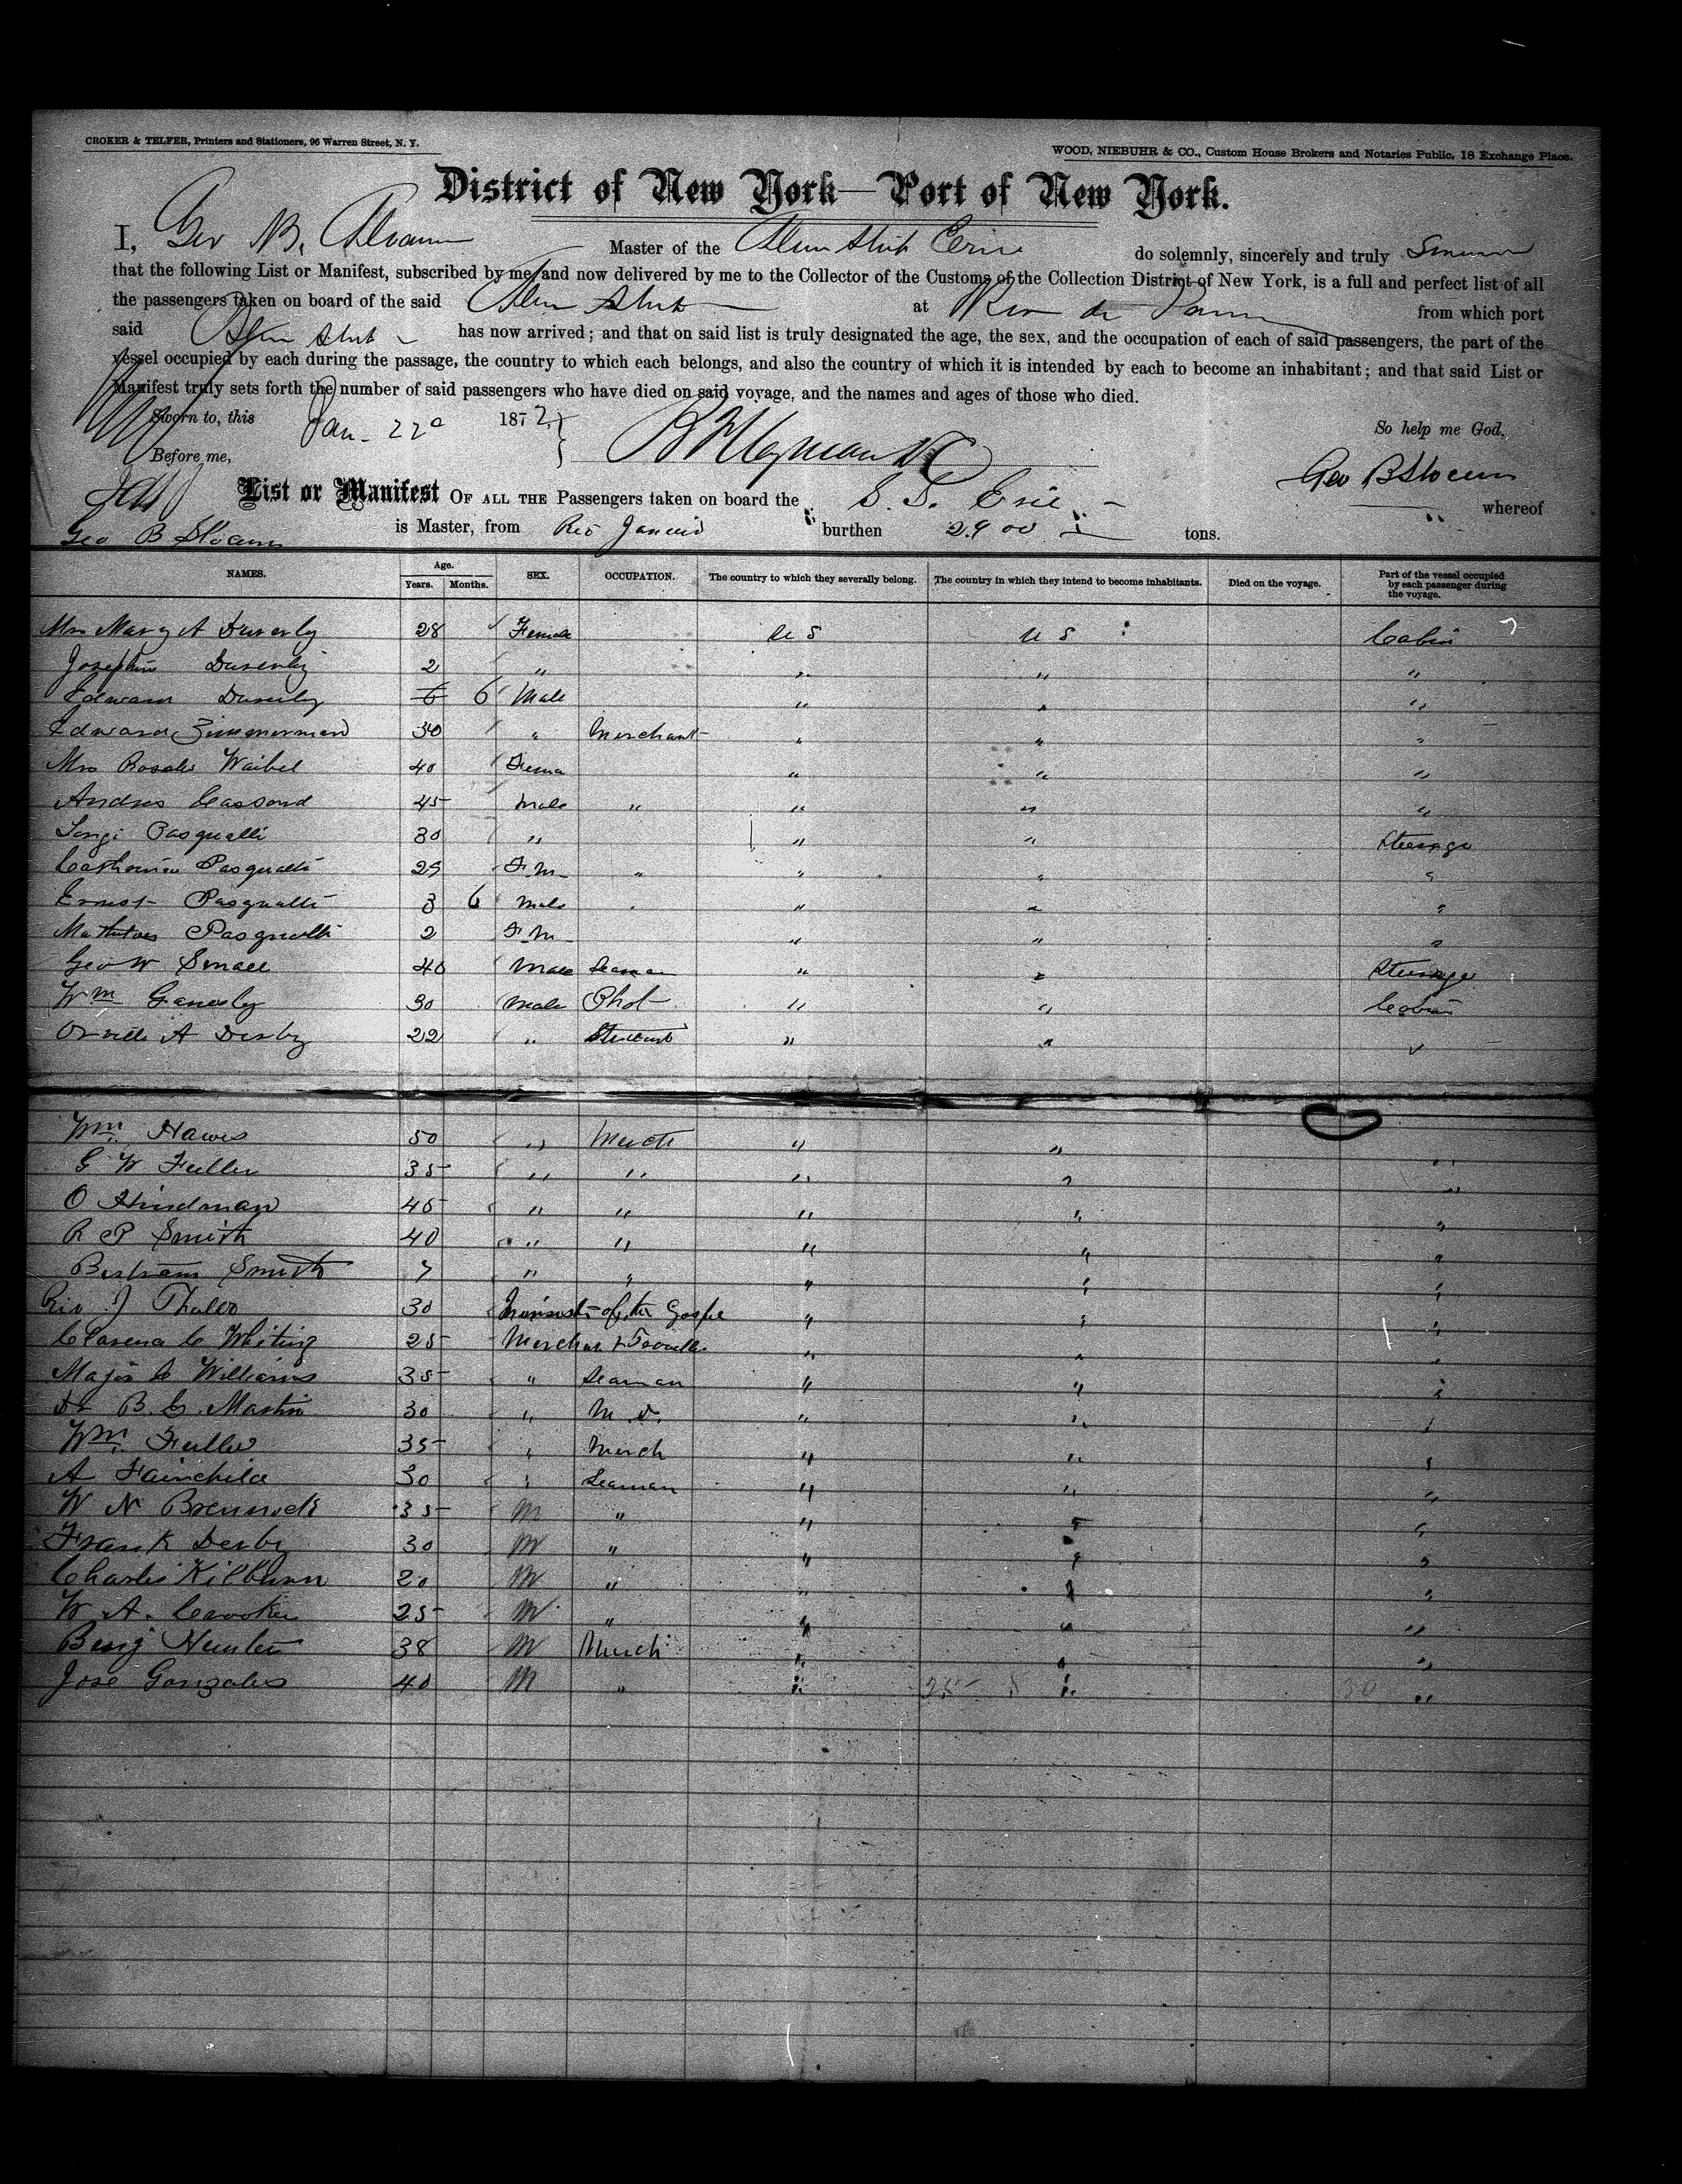 CROKER & TELFER, Printers and Stationers, 96 Warren Street, N. Y.
WOOD, NIEBUHR & CO., Custom House Brokers and Notaries Public, 18 Exchange Place.
District of New York—Port of New York.
I, Geo B. Slocum Master of the Steam Ship Erie do solemnly, sincerely and truly Swear
that the following List or Manifest, subscribed by me, and now delivered by me to the Collector of the Customs of the Collection District of New York, is a full and perfect list of all
the passengers taken on board of the said Steam Ship at Rio de from which port
said Steam Ship has now arrived; and that on said list is truly designated the age, the sex, and the occupation of each of said passengers, the part of the
vessel occupied by each during the passage, the country to which each belongs, and also the country of which it is intended by each to become an inhabitant; and that said List or
Manifest truly sets forth the number of said passengers who have died on said voyage, and the names and ages of those who died.
Sworn to, this Jan. 22d 1872 So help me God.
Before me, Geo B Slocum
List or Manifest OF ALL THE Passengers taken on board the S. S. Erie whereof
Geo B Slocum is Master, from Rio Janeiro burthen 2900 tons.
NAMES. Age. Years. Months. SEX. OCCUPATION. The country to which they severally belong. The country in which they intend to become inhabitants. Died on the voyage. Part of the vessel occupied by each passenger during the voyage.
Mrs Mary A 28 Female U S U S Cabin
Josephine 2 " " " "
Edward 6 6 Male " " "
Edward Zimmerman 30 " Merchant " " "
Mrs Rosalie Waibel 40 Fema " " "
Andres Cassard 45 Male " " " "
Luigi Pasqualli 30 " " " Steerage
Catharina Pasqualli 25 F.M. " " " "
Ernest Pasqualli 3 6 Male " " "
Pasqualli 2 F.M. " " "
Geo W Small 40 Male Seaman " " Steerage
Wm 30 Male Phot " " Cabin
Orville A Derby 22 " Student " " "
Wm Hawes 50 " Mercht " " "
G W Fuller 35 " " " " "
O Hindman 45 " " " " "
R P Smith 40 " " " " "
Bertram Smith 7 " " " " "
Rev J 30 Minister of the Gospel " " "
Clarence C Whiting 25 " " "
Major C Williams 35 " Seaman " " "
Dr B. C. Martin 30 " M. D. " " "
Wm Fuller 35 " Merch " " "
A Fairchild 30 " Seaman " " "
W N 35 M " " " "
Frank Derby 30 M " " " "
Charles Kilburn 20 M " " " "
W. A. Crooker 25 M " " " "
Benj Hunter 38 M Merch " " "
Jose Gonzales 40 M " " " "